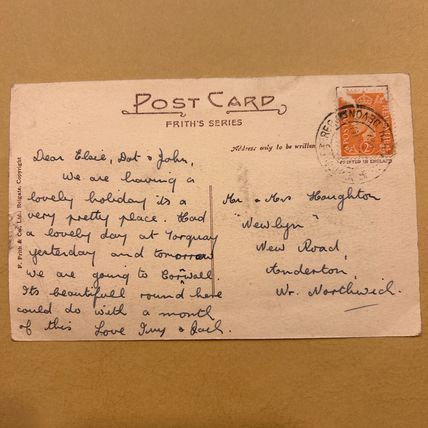 POST CARD
FRITH'S SERIES
Address only to be written
F. Frith & Co., Ltd., Reigate. Copyright
PRINTED IN ENGLAND
Dear Elsie, Dot & John,
We are having a
lovely holiday its a
very pretty place. Had
a lovely day at Torquay
yesterday and tomorrow
we are going to Cornwall
Its beautifull round here
could do with a month
of this Love &
Mr & Mrs Houghton
"Newlyn"
New Road
Anderton,
Nr. Northwich.
DEVON